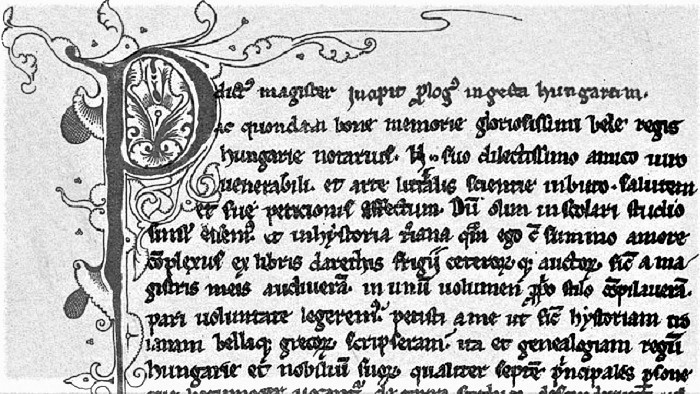 P dict᷒ magister Incipit ꝓlog᷒ in gesta hungarum.
ac quondam bone memorie gloriosissimi bele regis
hungarie notarius. N. suo dilectissimo amico uiro
uenerabili. et arte litt̄alis scientie inbuto. salutem
et sue peticionis effectum. Dū olim in scolari studio
simul essem᷒ et in hystoria t̄iana qm̄ ego c̄ summo amore
c̄plexus ex libris darethis frigii ceteroꝝ qꝫ auctoꝝ. sic̄ a ma
gistris meis audiuerā. in unū uolumen ꝓp̄o stilo c̄pilauerā.
pari uoluntate legerem᷒. petisti a me ut sic̄ hystoriam tro
ianam bellaqꝫ grecoꝝ scripseram. ita et genealogiam regū
hungarie et nobiliū suoꝝ. qualiter septē p̄ncipales ꝑsone